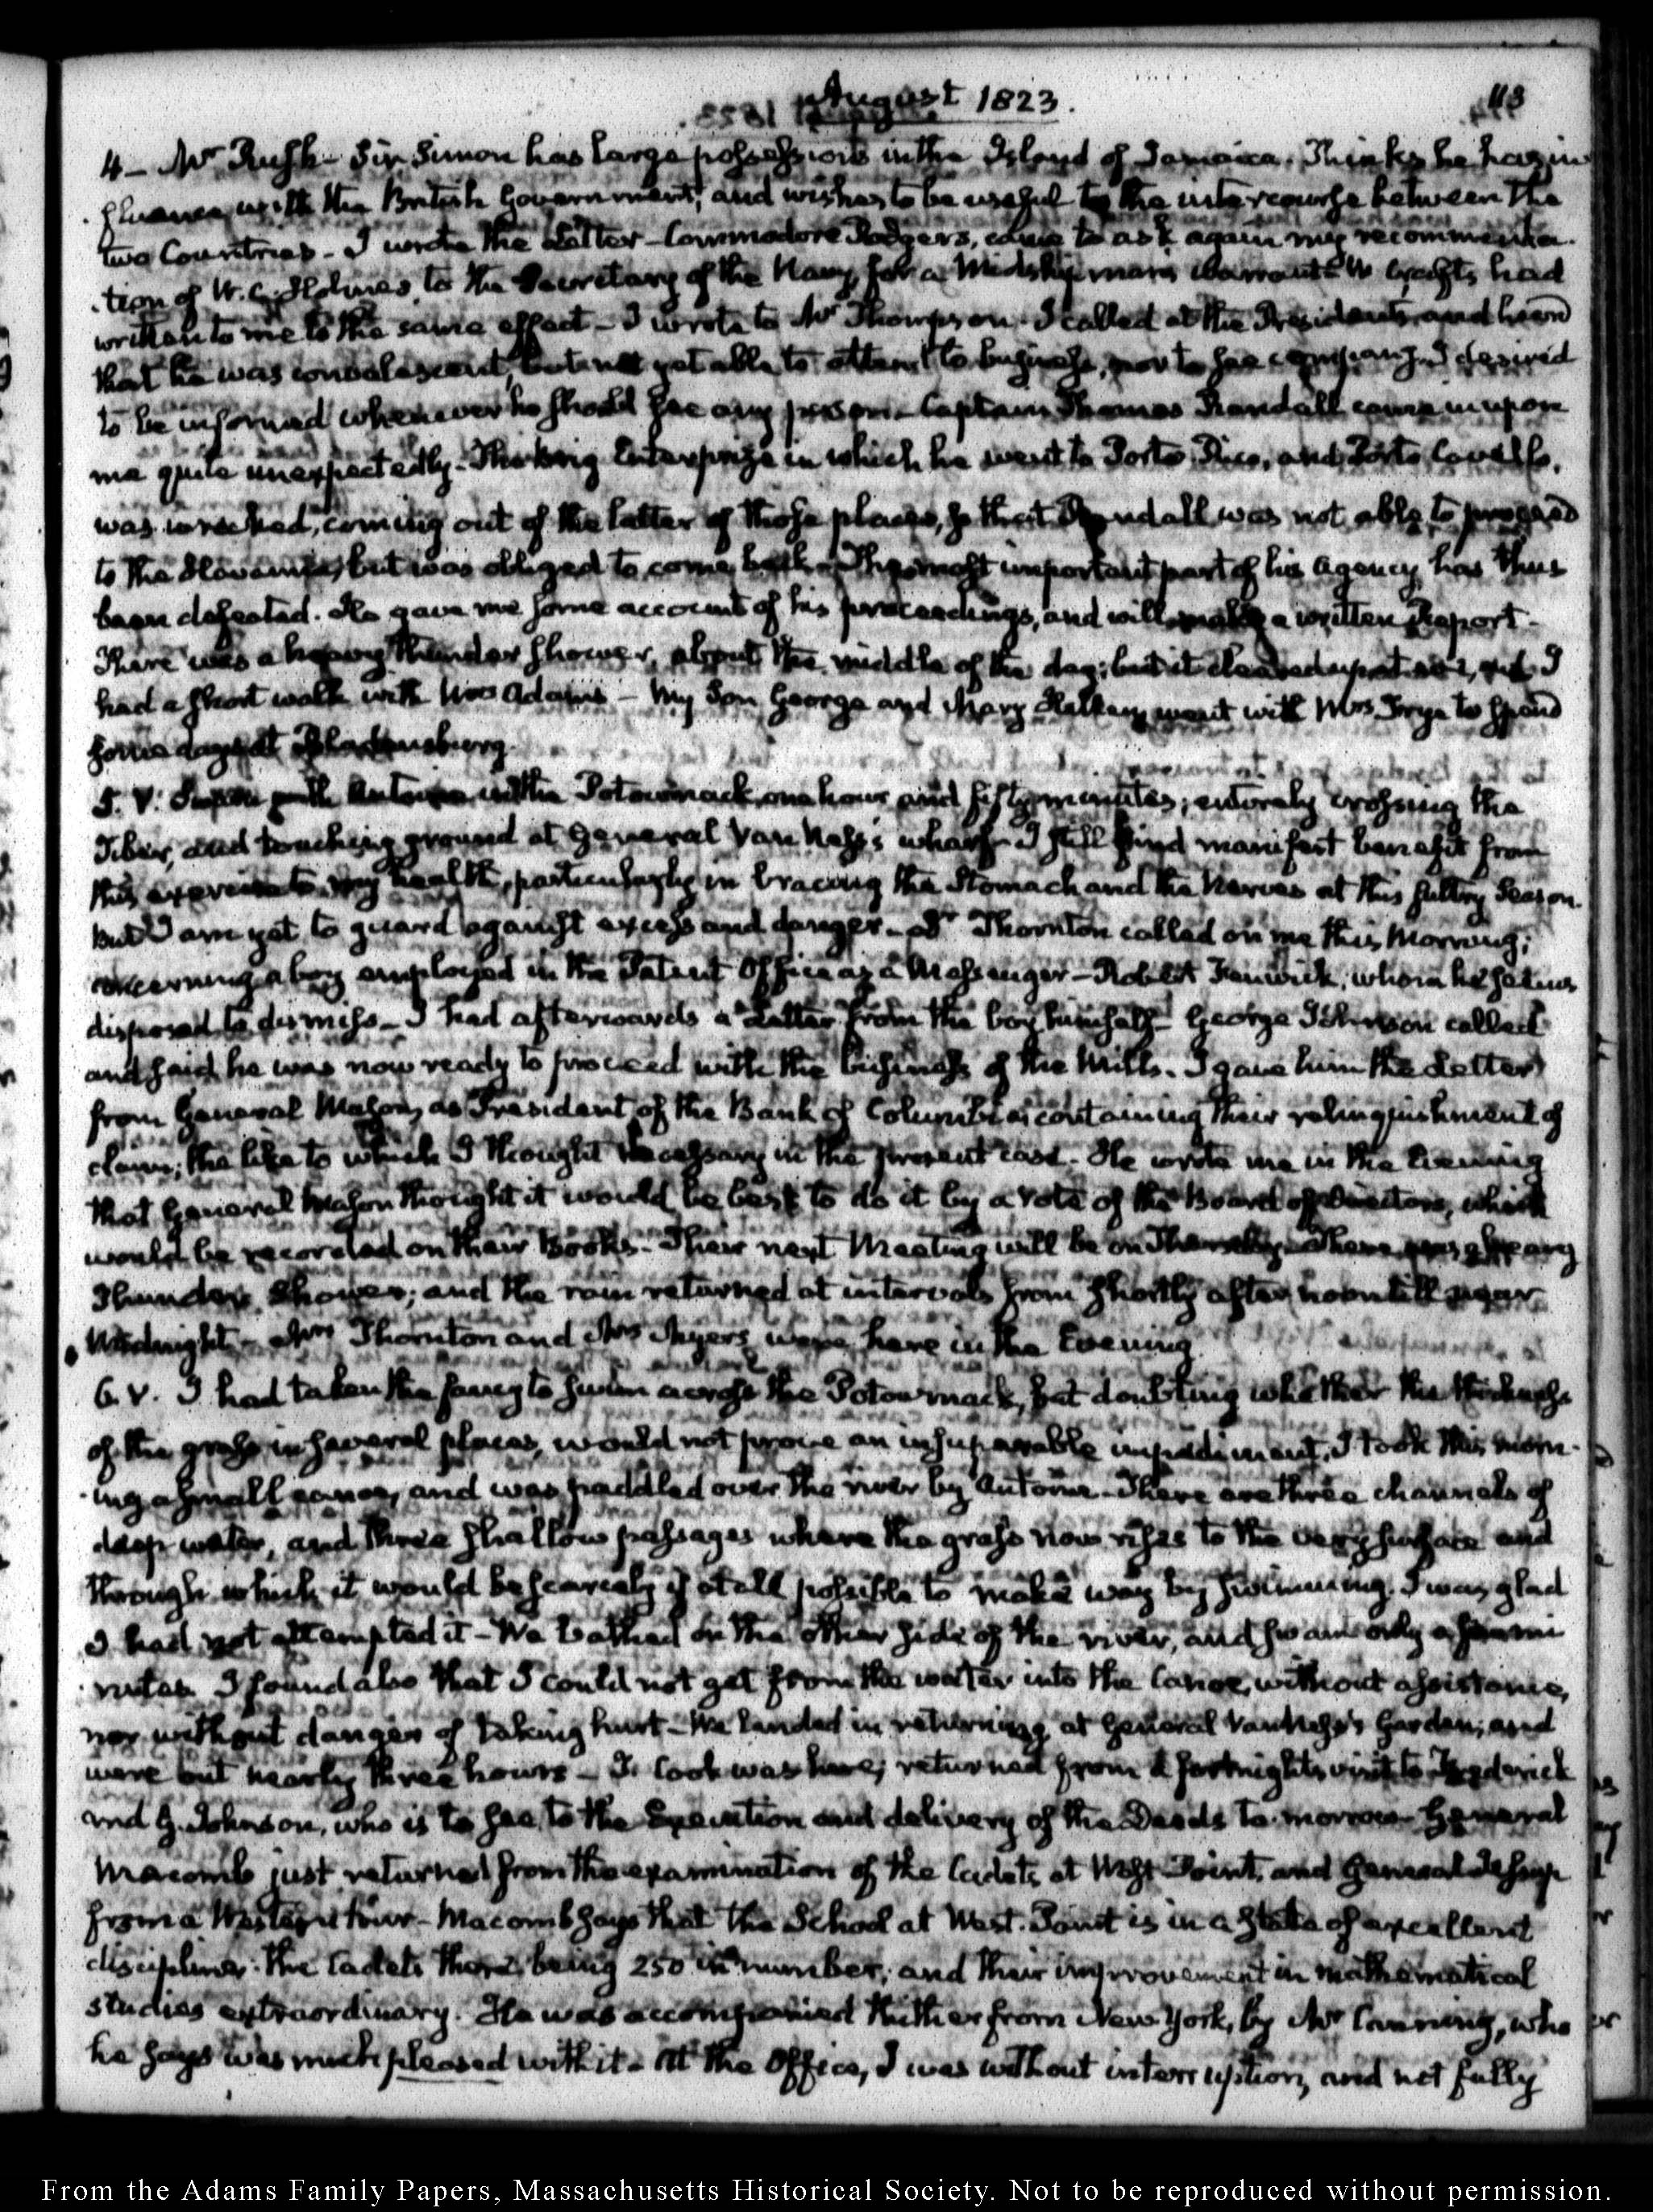 August 1823.
113
4 — Mr Rush — Sir Simon has large possessions in the Island of Jamaica. Thinks he has in-
fluence with the British Government, and wishes to be useful to the intercourse between the
two Countries — I wrote the Letter — Commodore Rodgers, came to ask again my recommenda-
tion of W. C. Holmes to the Secretary of the Navy for a Midshipman's warrant. W Crafts had
written to me to the same effect — I wrote to Mr Thompson. I called at the President's and heard
that he was convalescent, but not yet able to attend to business, nor to see company. I desired
to be informed whenever he should see any person — Captain Thomas Randall came in upon
me quite unexpectedly — The brig Enterprize in which he went to Porto Rico, and Porto Cavello,
was wrecked, coming out of the latter of those places, so that Randall was not able to proceed
to the Havanna, but was obliged to come back — The most important part of his Agency has thus
been defeated. He gave me some account of his proceedings, and will make a written Report —
There was a heavy Thunder shower, about the middle of the day; but it cleared up and I
had a short walk with Mrs Adams — My Son George and Mary Hellen, went with Mrs Frye to spend
some days at Bladensburg.
5. V. Swam with Antoine in the Potowmack one hour and fifty minutes; entirely crossing the
Tiber, and touching ground at General Van Ness's wharf — I still find manifest benefit from
this exercise to my health, particularly in bracing the Stomach and the Nerves at this sultry Season.
But I am yet to guard against excess and danger — Dr Thornton called on me this Morning;
concerning a boy employed in the Patent Office as a Messenger — Robert Fenwick, whom he seems
disposed to dismiss — I had afterwards a Letter from the boy himself — George Johnson called
and said he was now ready to proceed with the business of the Mills. I gave him the Letter
from General Mason, as President of the Bank of Columbia; containing their relinquishment of
claim; the like to which I thought necessary in the present case. He wrote me in the Evening
that General Mason thought it would be best to do it by a vote of the Board of Directors, which
would be recorded on their Books — Their next Meeting will be on Thursday — There was a heavy
Thunder Shower; and the rain returned at intervals from shortly after noon till near
Midnight — Mrs Thornton and Mrs Myers were here in the Evening.
6. V. I had taken the fancy to swim across the Potowmack, but doubting whether the thickness
of the grass in several places, would not prove an insuperable impediment, I took this morn-
ing a small canoe, and was paddled over the river by Antoine — There are three channels of
deep water, and three shallow passages where the grass now rises to the very surface and
through which it would be scarcely if at all possible to make way by swimming. I was glad
I had not attempted it — We bathed on the other side of the river, and swam only a few mi-
nutes. I found also that I could not get from the water into the Canoe, without assistance,
nor without danger of taking hurt — We landed in returning at General Van Ness's Garden; and
were out nearly three hours — Cook was here; returned from a fortnight's visit to Frederick
and G. Johnson, who is to see to the Execution and delivery of the Deeds to-morrow — General
Macomb just returned from the examination of the Cadets at West Point, and General Jesup
from a Western tour — Macomb says that the School at West-Point is in a State of excellent
discipline. The Cadets there being 250 in number; and their improvement in mathematical
studies extraordinary. He was accompanied thither from New York, by Mr Canning, who
he says was much pleased with it — At the Office, I was without interruption, and not fully
From the Adams Family Papers, Massachusetts Historical Society. Not to be reproduced without permission.